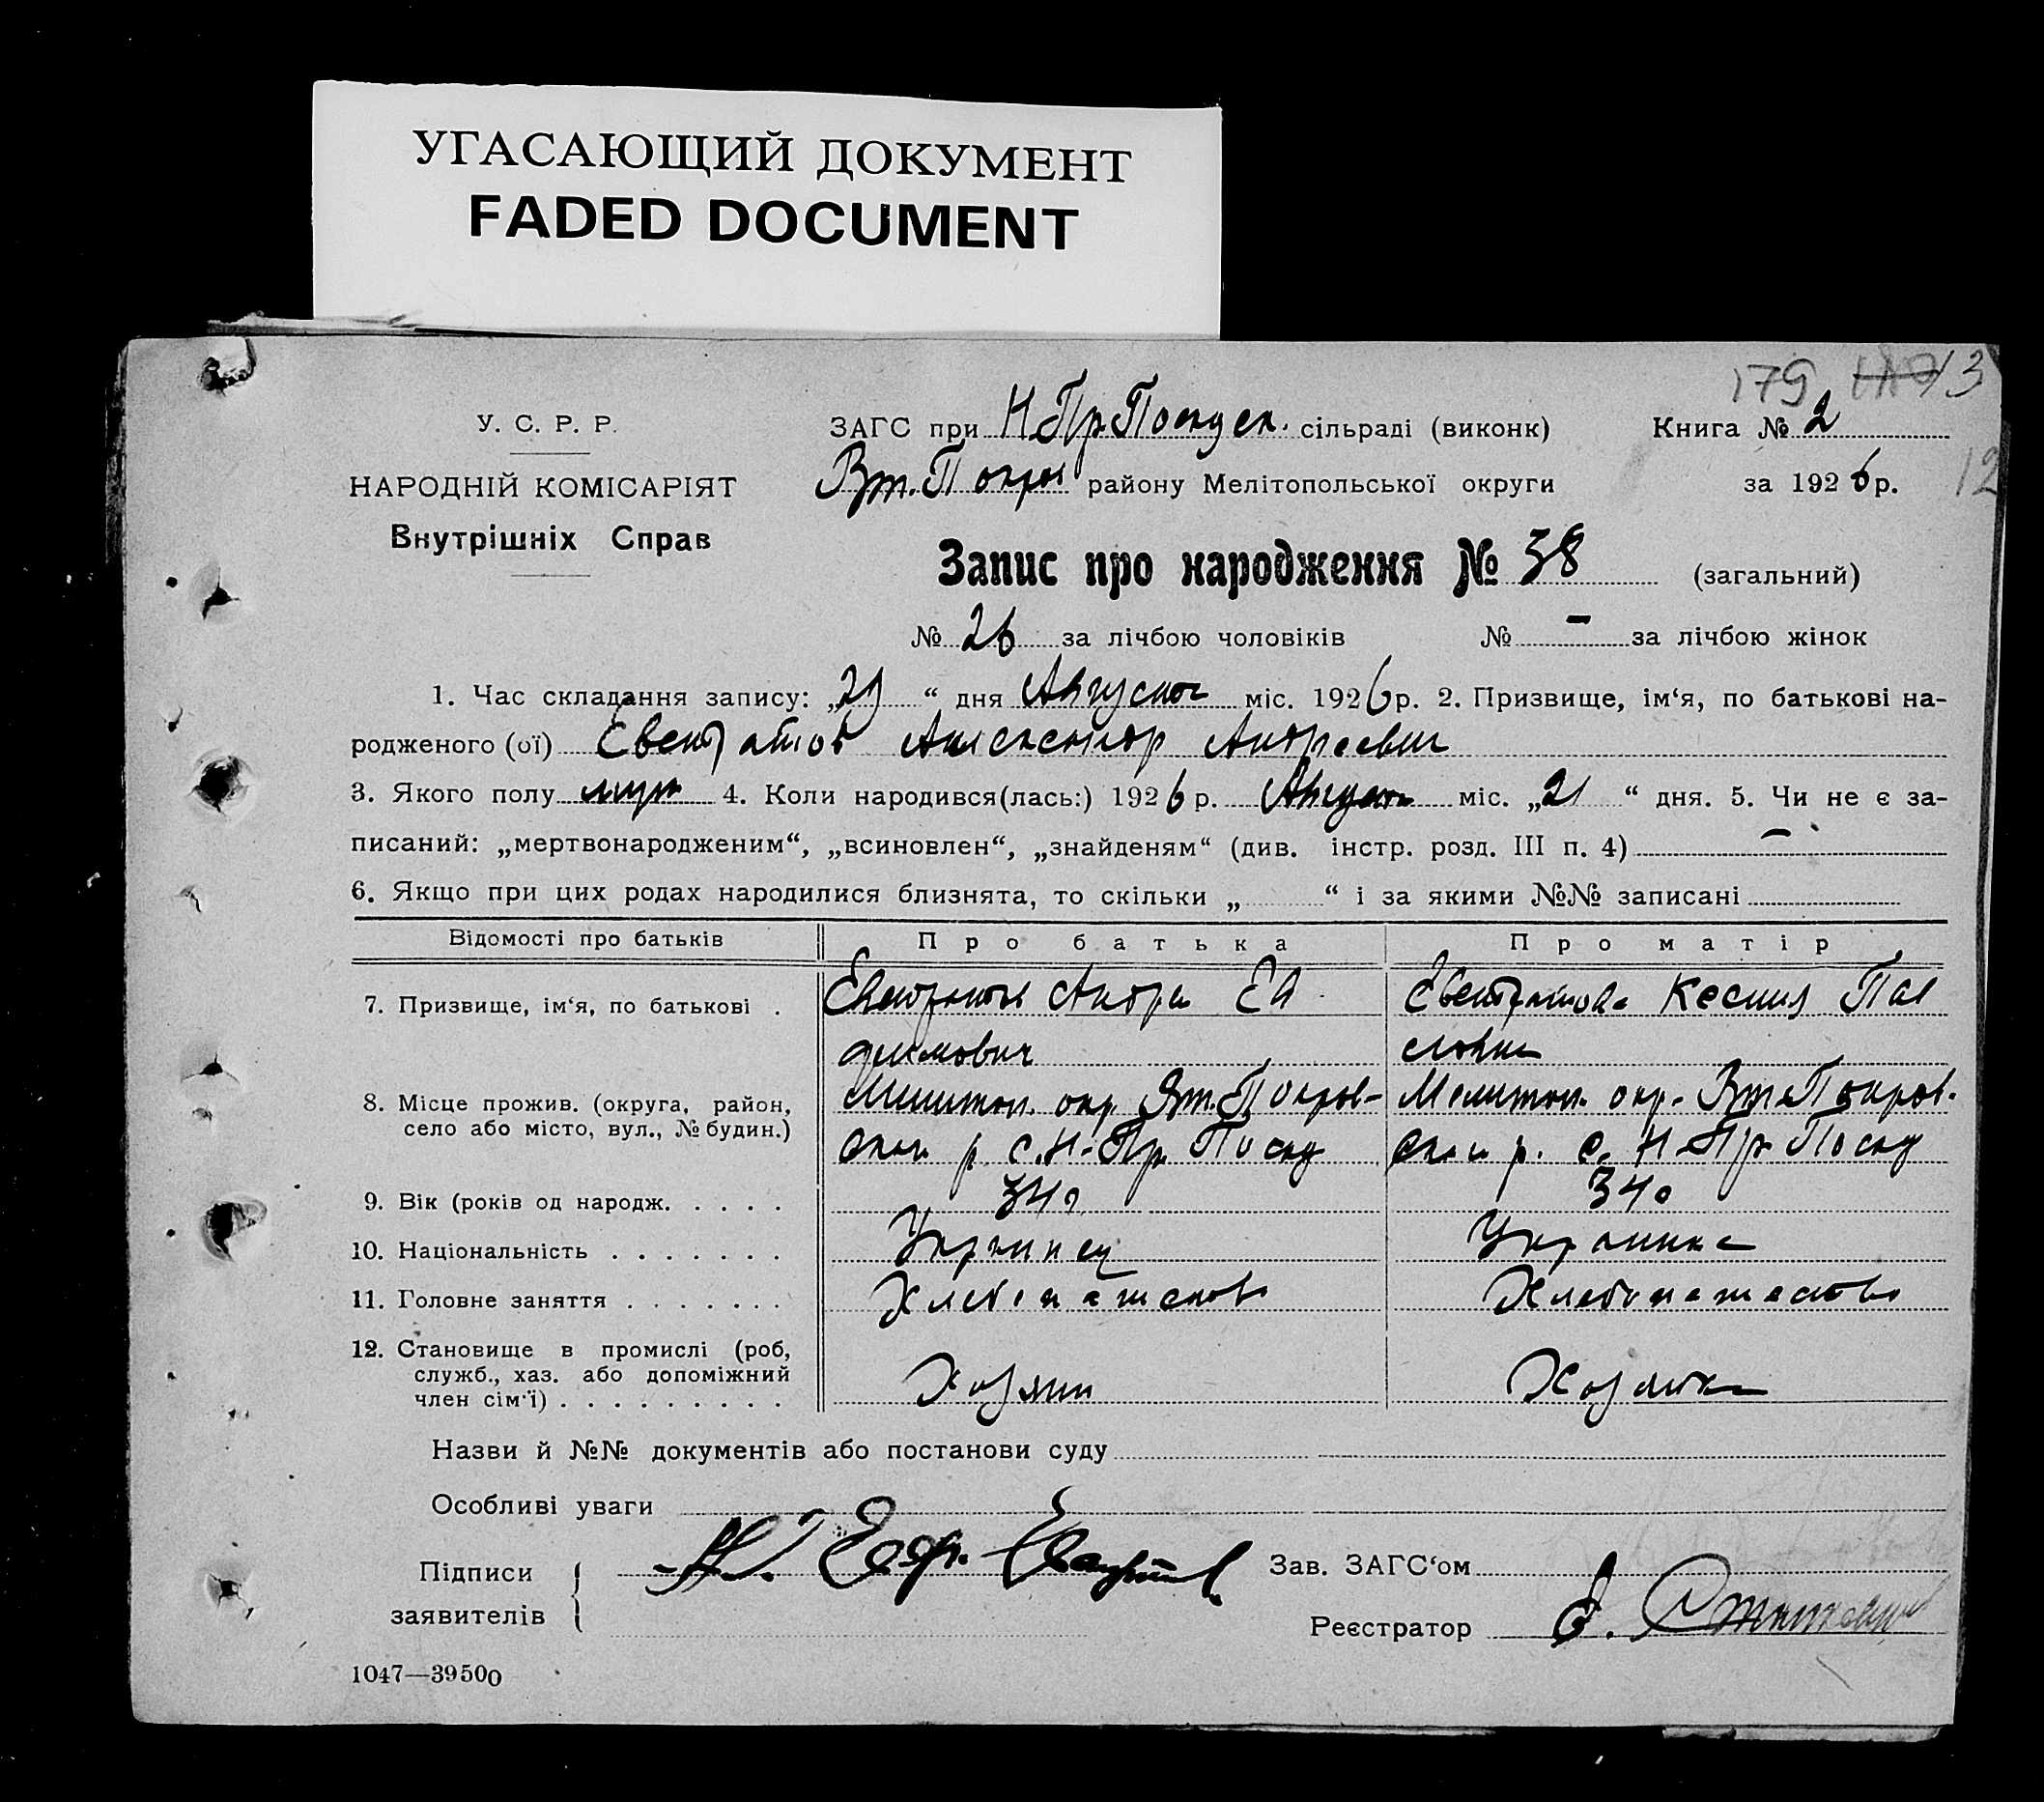 УГАСАЮЩИЙ ДОКУМЕНТ
FADED DOCUMENT
179 13
У. С. Р. Р. ЗАГС при Н.Пр.Посад ск. сільраді (виконк) Книга № 2
НАРОДНІЙ КОМІСАРІЯТ Вт.Покров району Мелітопольської округи за 1926 р. 12
Внутрішніх Справ
Запис про народження № 38 (загальний)
№ 26 за лічбою чоловіків № – за лічбою жінок
1. Час складання запису: „29“ дня Августа міс. 1926 р. 2. Призвище, ім‘я, по батькові на-
родженого (ої) Евстратов Александр Андреевич
3. Якого полу муж 4. Коли народився(лась:) 1926 р. Август міс. „21“ дня. 5. Чи не є за-
писаний: „мертвонародженим“, „всиновлен“, „знайденям“ (див. інстр. розд. III п. 4) –
6. Якщо при цих родах народилися близнята, то скільки „ “ і за якими №№ записані
Відомості про батьків Про батька Про матір
7. Призвище, ім‘я, по батькові . Евстратов Андрей Ев Евстратова Ксения Пав
докимович ловна
8. Місце прожив. (округа, район, Мелитоп. окр. Вт.Покров- Мелитоп. окр. Вт.Покров-
село або місто, вул., № будин.) ской р. с. Н-Пр. Посад ской р. с. Н-Пр Посад
9. Вік (років од народж. . . . . 34 34
10. Національність . . . . . . . Украинец Украинка
11. Головне заняття . . . . . . . Хлебопашество Хлебопашество
12. Становище в промислі (роб,
служб., хаз. або допоміжний Хозяин Хозяйка
член сім‘ї) . . . . . . . . .
Назви й №№ документів або постанови суду
Особливі уваги
Підписи Зав. ЗАГС‘ом
заявителів Реєстратор
1047—39500